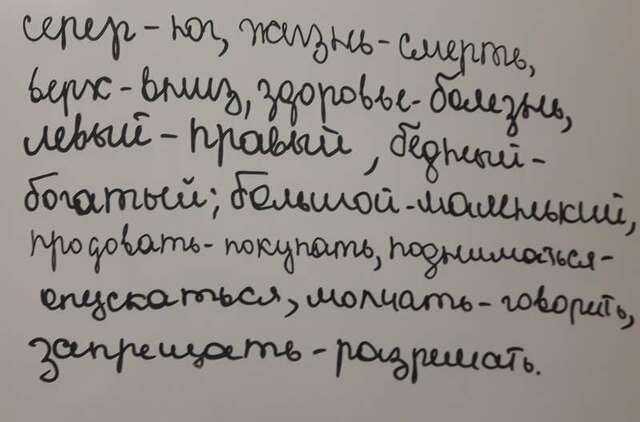 серер-юг, жизнь-смерть,
верх-вниз, здоровье-болезнь,
левый-правый, бедный-
богатый; большой-маленький,
продовать-покупать, подниматься-
опускаться, молчать-говорить,
запрещать-разрешать.